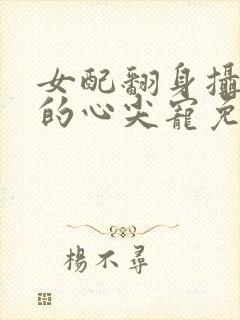 女配翻身攝
的心尖寵免
楊不尋